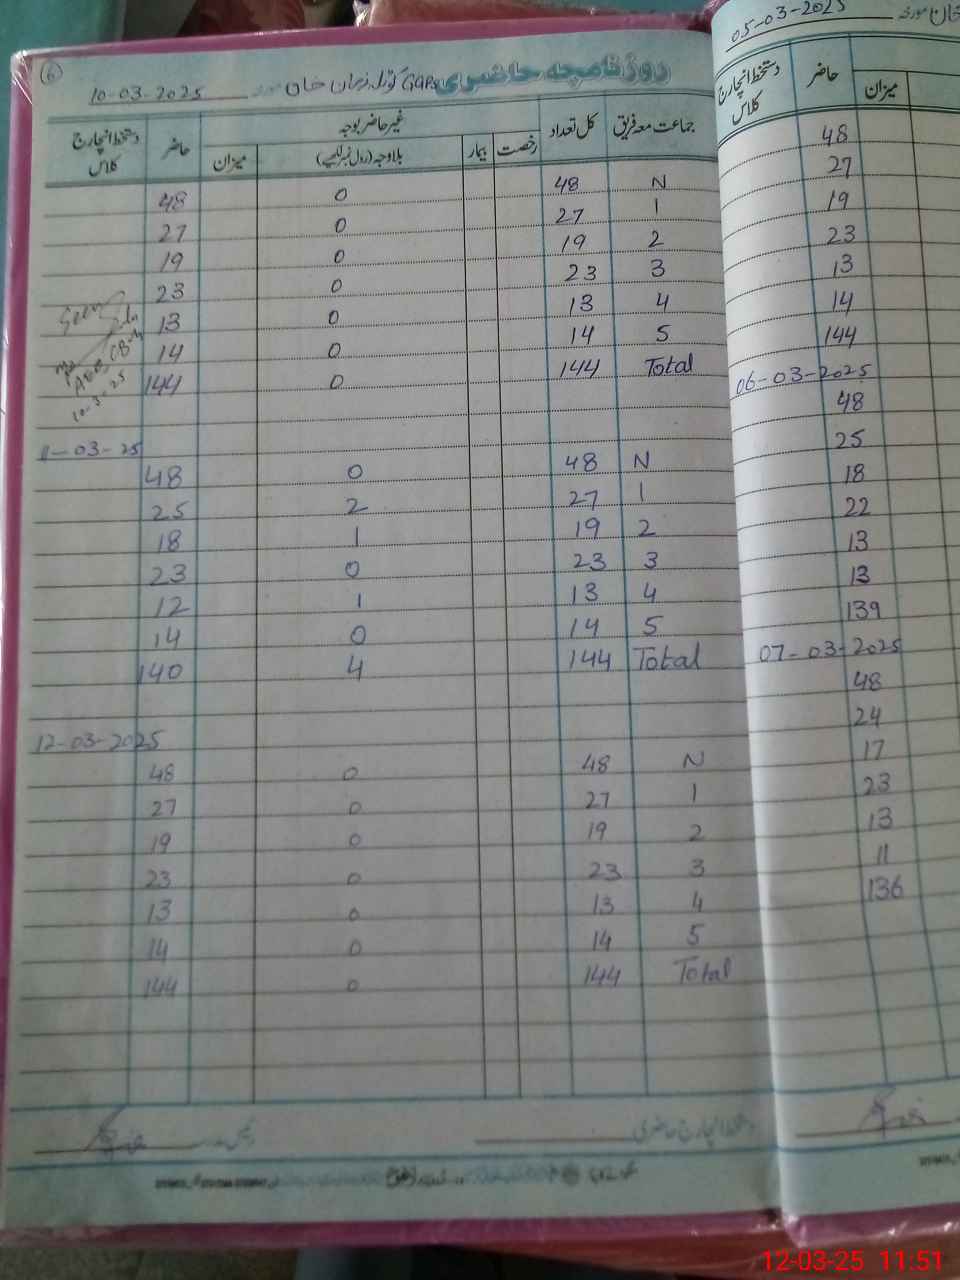 6
روزنامچہ حاضری GGPS کوٹلہ زمان خان مورخہ 10-03-2025
جماعت معہ فریق کل تعداد غیر حاضر بوجہ حاضر دستخط انچارج کلاس
رخصت بیمار بلاوجہ (رول نمبر لکھیے) میزان
N 48 0 48
1 27 0 27
2 19 0 19
3 23 0 23
4 13 0 13
5 14 0 14
Total 144 0 144
Seen
10-3-25
11-03-25
N 48 0 48
1 27 2 25
2 19 1 18
3 23 0 23
4 13 1 12
5 14 0 14
Total 144 4 140
12-03-2025
N 48 0 48
1 27 0 27
2 19 0 19
3 23 0 23
4 13 0 13
5 14 0 14
Total 144 0 144
دستخط انچارج حاضری
خان مورخہ 05-03-2025
میزان حاضر دستخط انچارج کلاس
48
27
19
23
13
14
144
06-03-2025
48
25
18
22
13
13
139
07-03-2025
48
24
17
23
13
11
136
12-03-25 11:51